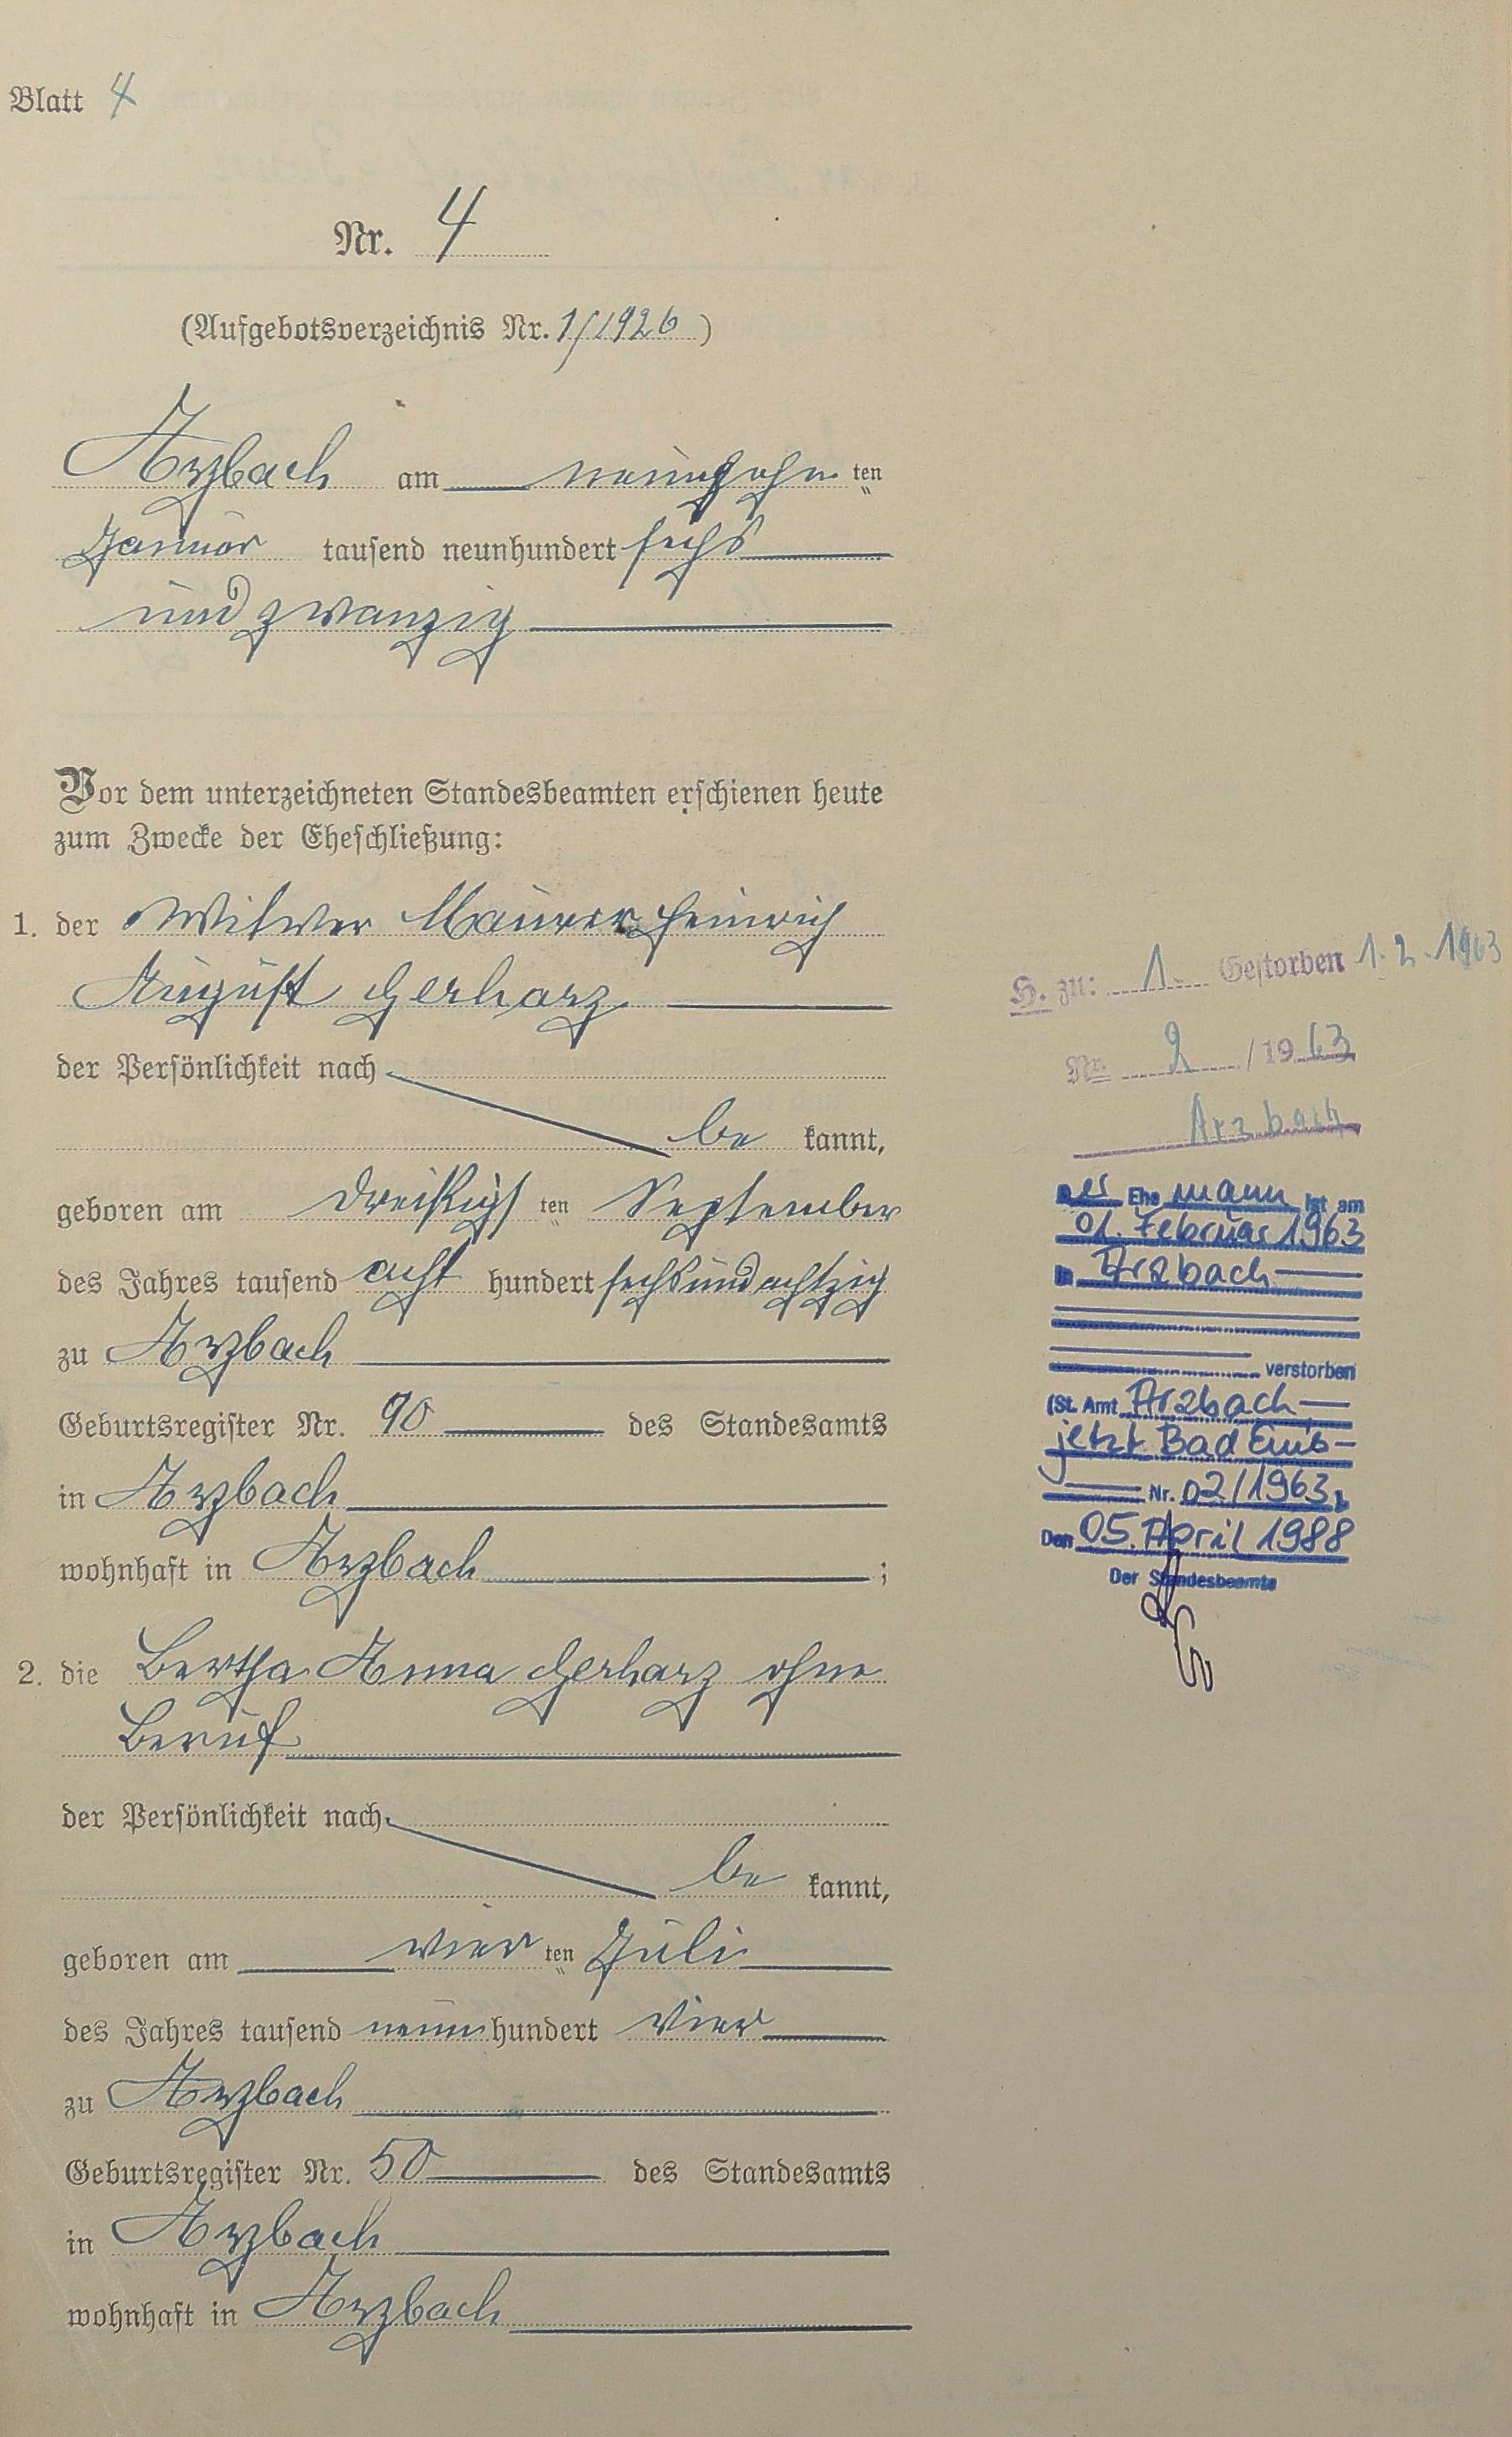 Blatt 4
Nr. 4
(Aufgebotsverzeichnis Nr. 1/1926)
Arzbach am neunzehn ten
Januar tausend neunhundert sechs
und zwanzig
Vor dem unterzeichneten Standesbeamten erschienen heute
zum Zwecke der Eheschließung:
1. der Witwer Maurer Heinrich
August Gerharz
der Persönlichkeit nach
be kannt,
geboren am dreißigst ten September
des Jahres tausend acht hundert sechsundachtzig
zu Arzbach
Geburtsregister Nr. 90 des Standesamts
in Arzbach
wohnhaft in Arzbach ;
2. die Bertha Anna Gerharz ohne
Beruf
der Persönlichkeit nach
be kannt,
geboren am vier ten Juli
des Jahres tausend neun hundert vier
zu Arzbach
Geburtsregister Nr. 50 des Standesamts
in Arzbach
wohnhaft in Arzbach
H. zu: 1. Gestorben 1.2.1963
Nr. 2 / 1963
Arzbach
Der Ehemann ist am
01. Februar 1963
in Arzbach
verstorben
(St. Amt Arzbach
jetzt Bad Ems
Nr. 02/1963)
Den 05. April 1988
Der Standesbeamte